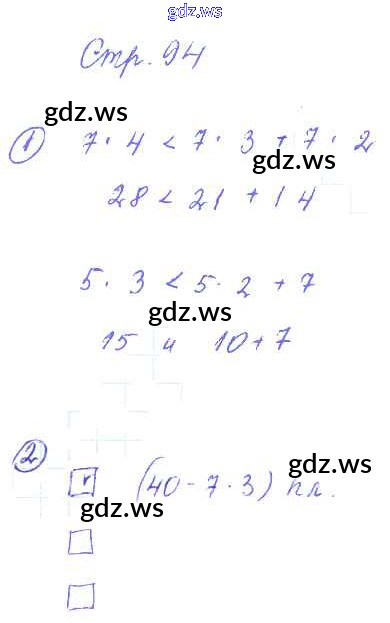 gdz.ws
Стр. 94
gdz.ws
1 7 · 4 < 7 · 3 + 7 · 2
gdz.ws
28 < 21 + 14
5 · 3 < 5 · 2 + 7
gdz.ws
15 и 10+7
2
gdz.ws
(40 - 7 · 3) пл.
gdz.ws
gdz.ws